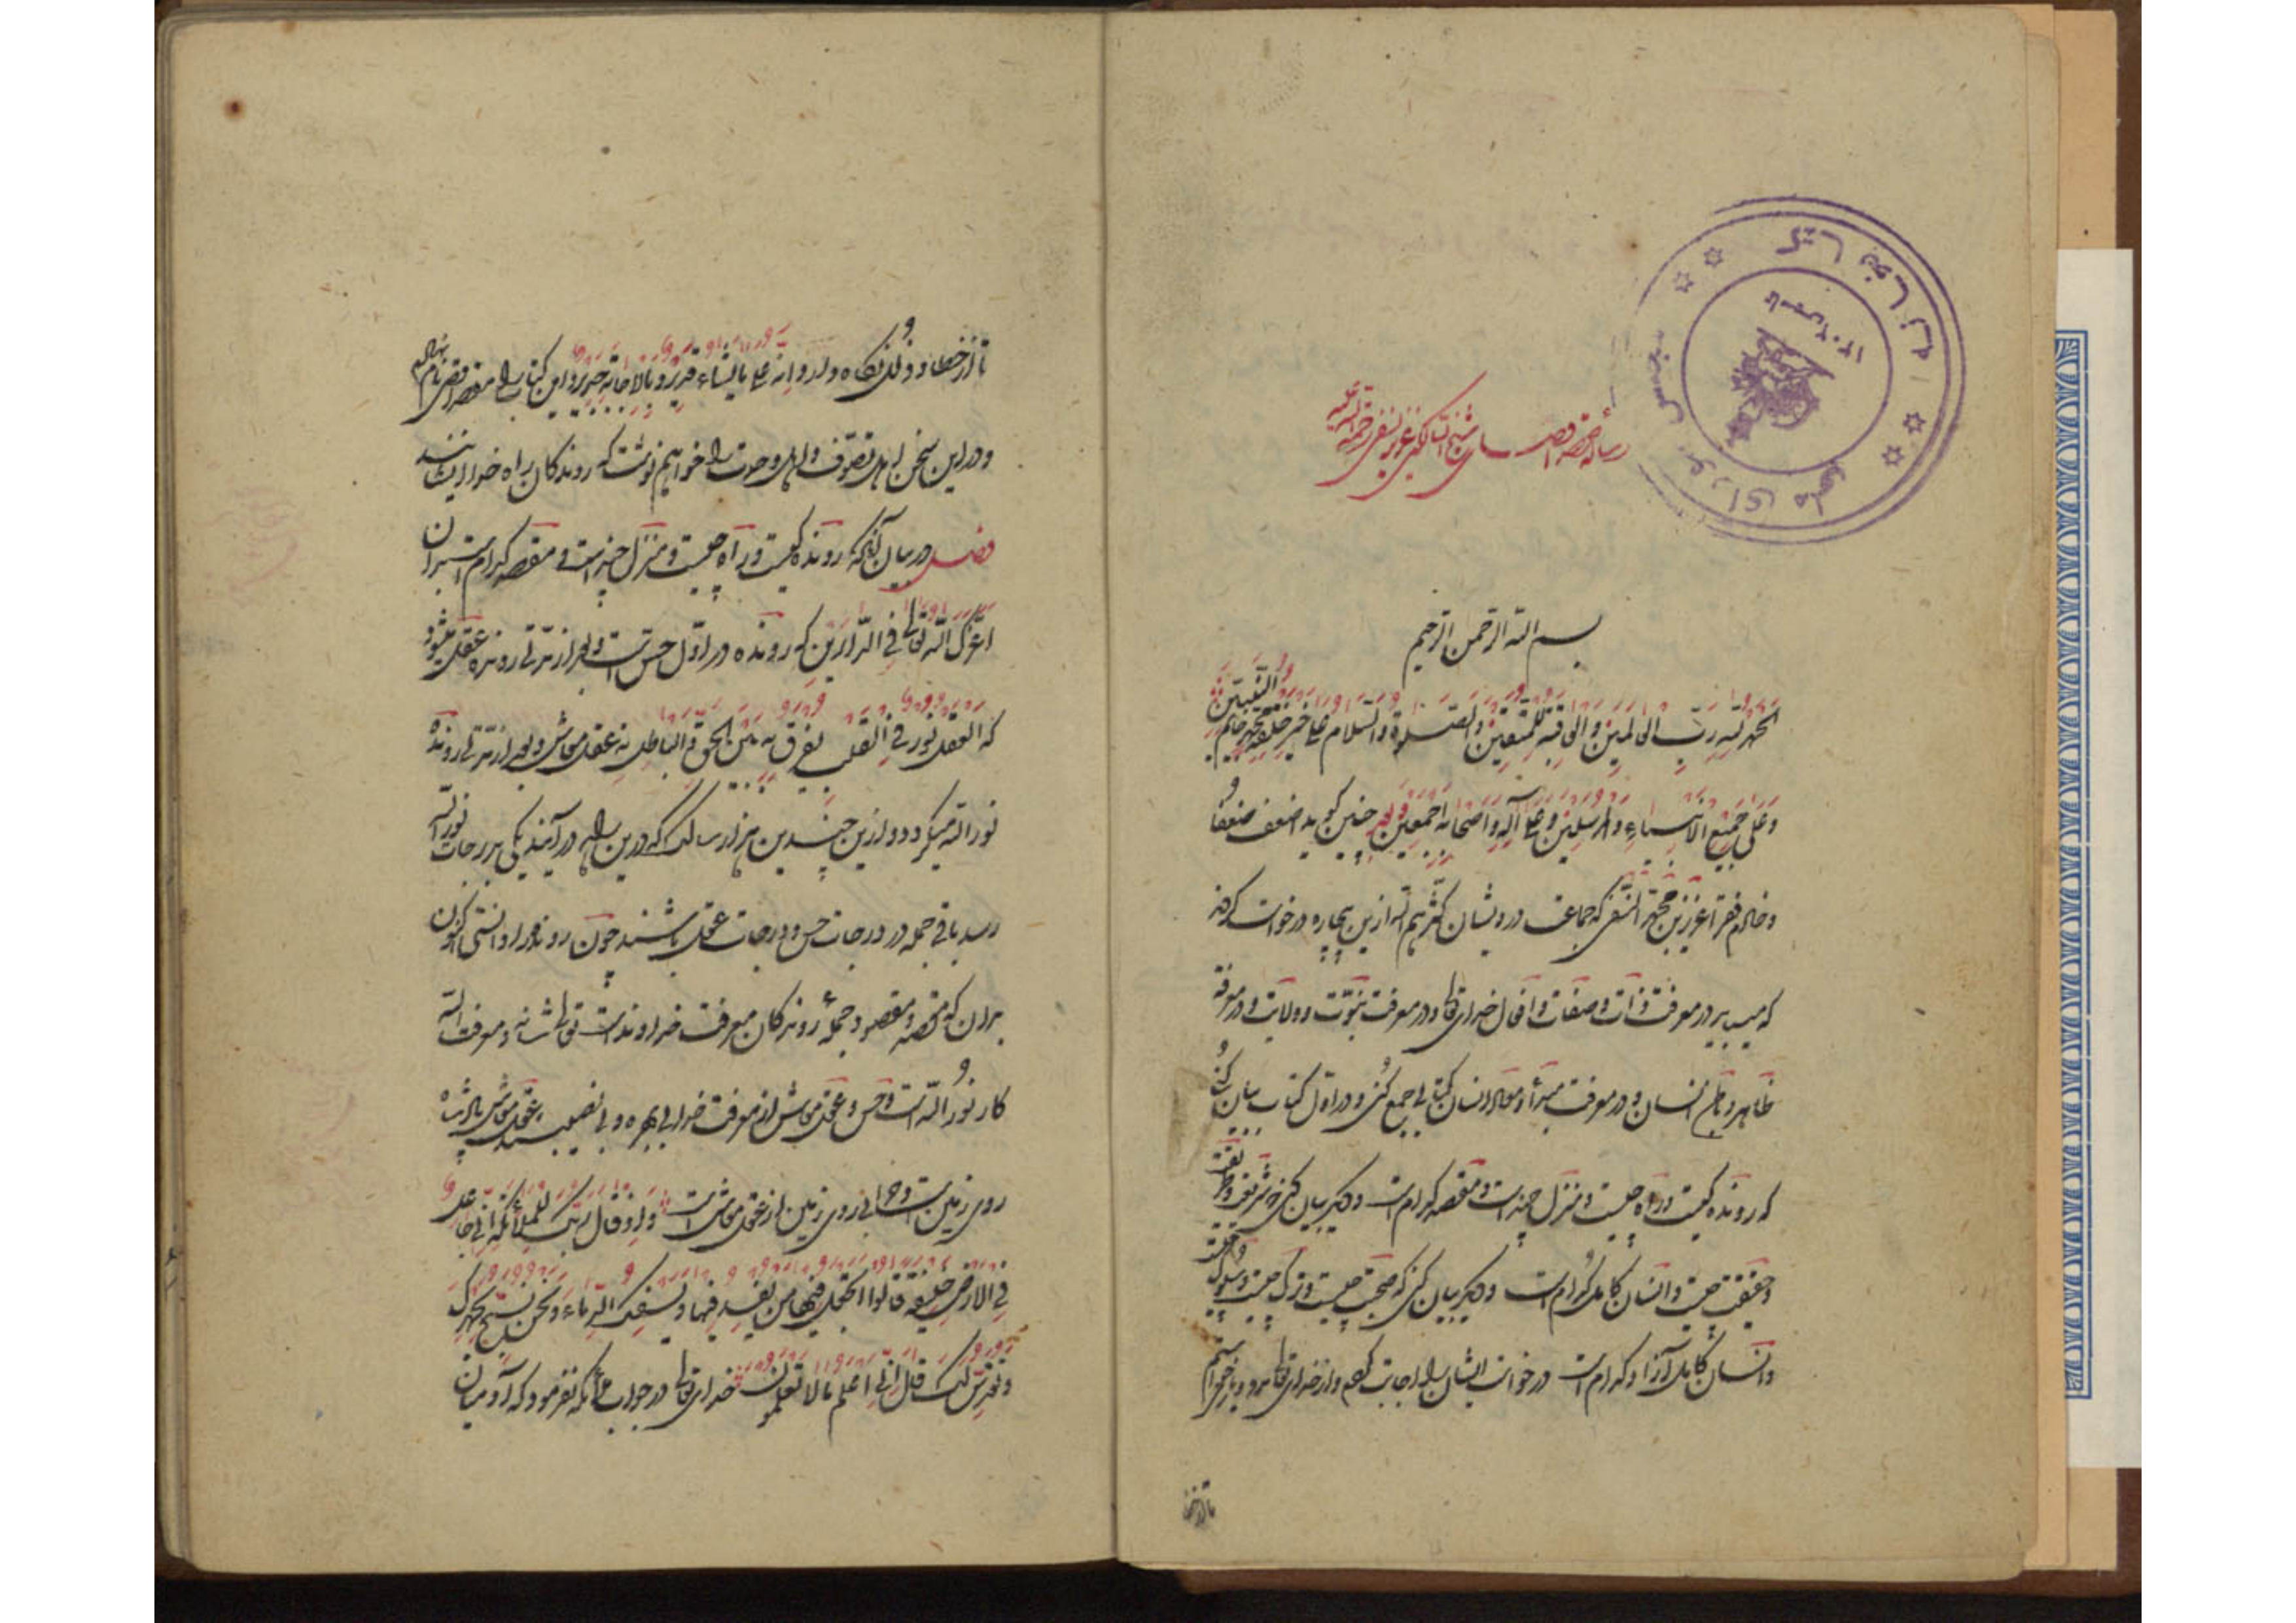 رساله مقصد اقصی شیخ السالکین عزیز نسفی رحمة الله علیه
کتابخانه مجلس شورای ملی
تاسیس ۱۳۰۲
بسم الله الرحمن الرحیم
الحمد لله رب العالمین والعاقبة للمتقین والصلوة والسلام علی خیر خلقه محمد خاتم النبیین
وعلی جمیع الانبیاء والمرسلین وعلی آله واصحابه اجمعین چنین گوید اضعف ضعفا
وخادم فقرا عزیز بن محمد النسفی که جماعت درویشان کثرهم الله ازین بیچاره درخواست کردند
که میباید در معرفت ذات و صفات و افعال خدای تعالی و در معرفت نبوت و ولایت و در معرفة
ظاهر و باطن انسان و در معرفت مبدأ و معاد انسان کتابی جمع کنی و در اول کتاب بیان کنی
که رونده کیست و راه چیست و منزل چندست و مقصد کدام است و دیگر بیان کنی که شریعت و طریقت
و حقیقت چیست و انسان کامل کدام است و دیگر بیان کنی که صحبت چیست و ترک چیست و سلوک چیست
و انسان کامل آزاد کدام است درخواست ایشان را اجابت کردم و از خدای تعالی مدد و یاری خواستم
تا از خطا
تا از خطا و زلل نگاه دارد وانه علی ما یشاء قدیر وبالاجابة جدیر و این کتاب را مقصد اقصی نام نهادم
و در این سخن اهل تصوف و اهل وحدت را خواهم نوشت که روندگان راه خدا ایشانند
فصل در بیان آنکه رونده کیست و راه چیست و منزل چندست و مقصد کدام است بدان
اعزک الله تعالی فی الدارین که رونده در اول حس است و بعد از مدتی رونده عقل میشود
که العقل نور فی القلب یفرق به بین الحق والباطل نه عقل معاش و بعد از مدتی رونده
نور الله میگردد و ازین چندین هزار سالک که درین راه درآیند یکی بدرجات نور الله
رسد باقی جمله در درجات حس و درجات عقل باشند چون رونده را دانستی اکنون
بدان که مقصد و مقصود جمله روندگان معرفت خداوندست تعالی شانه و معرفت الله
کار نور الله است و حس و عقل معاش از معرفت خدا بی بهره و بی نصیب اند عقل معاش پادشاه
روی زمین است و آبادانی روی زمین از عقل معاش است واذ قال ربک للملائکة انی جاعل
فی الارض خلیفة قالوا اتجعل فیها من یفسد فیها ویسفک الدماء ونحن نسبح بحمدک
ونقدس لک قال انی اعلم ما لا تعلمون خدای تعالی در جواب ملائکه نفرمود که آدمیان